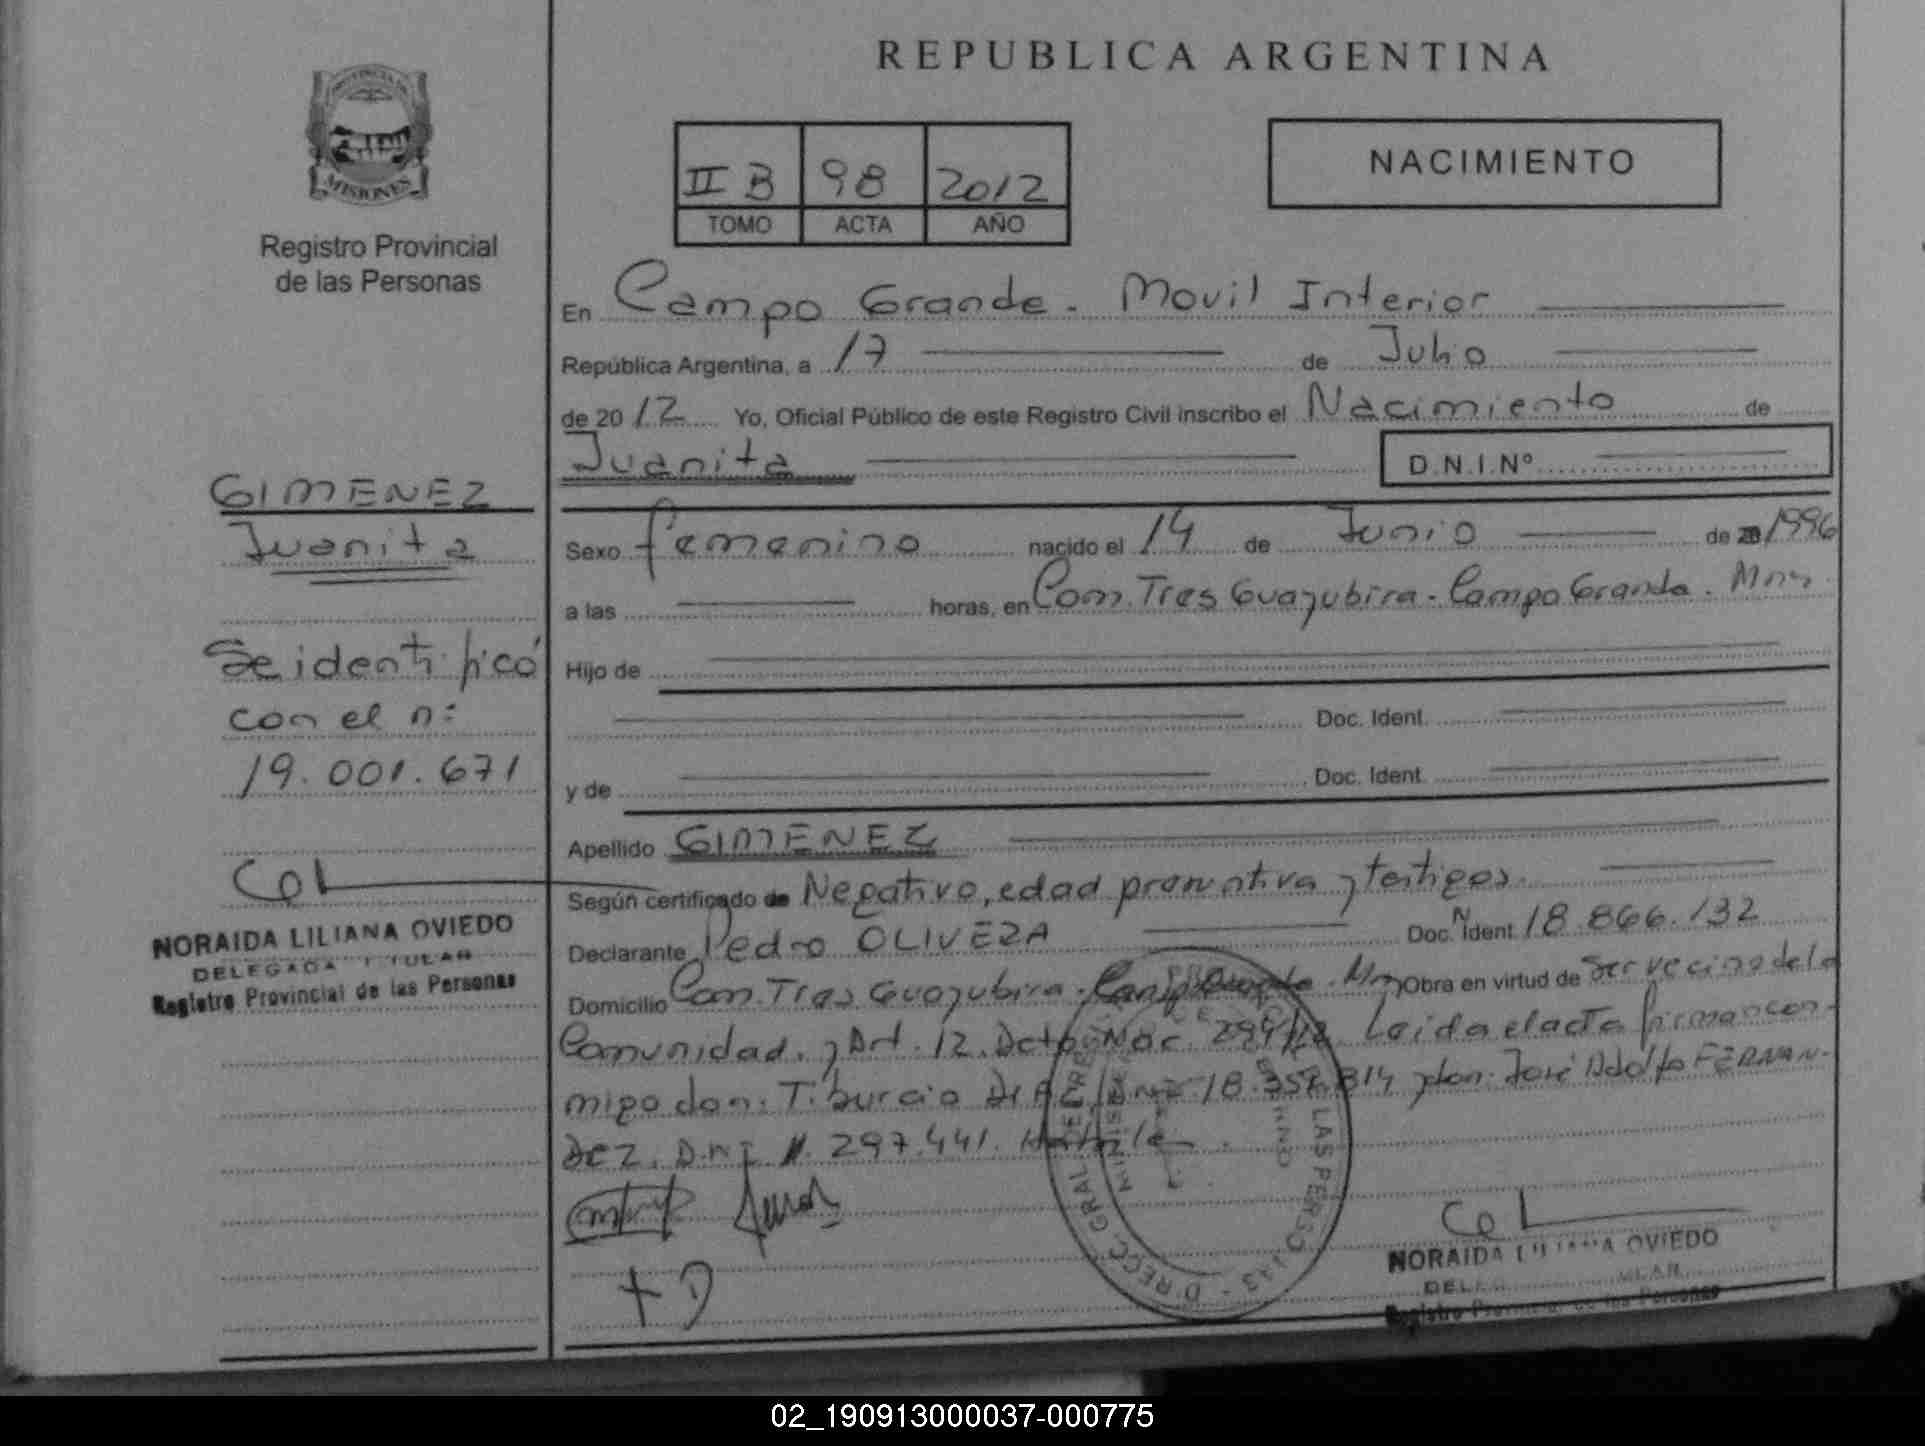 REPUBLICA ARGENTINA
PROVINCIA DE
MISIONES
Registro Provincial
de las Personas
II B 98 2012
TOMO ACTA AÑO
NACIMIENTO
En Campo Grande - Movil Interior
República Argentina, a 17 de Julio
de 20 12 Yo, Oficial Público de este Registro Civil inscribo el Nacimiento de
Juanita D.N.I.Nº
Sexo femenino nacido el 14 de Junio de 20 1996
a las horas, en Com. Tres Guazubira - Campo Grande. Mnes
Hijo de
Doc. Ident.
y de Doc. Ident.
Apellido GIMENEZ
Según certificado de Negativo, edad presuntiva y testigos.
Declarante Pedro OLIVERA Doc. Ident. N 18.866.132
Domicilio Com. Tres Guazubira - Campo Grande. Mnes Obra en virtud de Ser vecino de la
Comunidad. y Art. 12. Dcto. Nac. 294/12 Leida el acta firman con-
migo don: Tiburcio DNI 18.352.814 y don. José Adolfo FERNAN-
DEZ. D.N.I 11.297.441. Habiles.
+ D
NORAIDA LILIANA OVIEDO
Registro Provincial de las Personas
GIMENEZ
Juanita
Se identificó
con el n:
19.001.671
NORAIDA LILIANA OVIEDO
DELEGADA TITULAR
Registro Provincial de las Personas
02_190913000037-000775